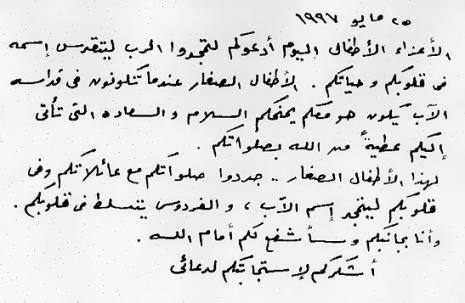 ٢٥ مايو ١٩٩٧
الأعزاء الأطفال اليوم أدعوكم لتمجدوا الرب ليتقدس إسمه
فى قلوبكم وحياتكم . الأطفال الصغار عندما تكونون فى قداسه
الآب يكون هو معكم يمنحكم السلام والسعاده التى تأتى
إليكم عطيةً من الله بصلواتكم .
لهذا الأطفال الصغار .. جددوا صلواتكم مع عائلاتكم وفى
قلوبكم ليتمجد إسم الآب ، والفردوس يتسلط فى قلوبكم .
وأنا بجانبكم وسأشفع لكم أمام الله .
أشكركم لإستجابتكم لدعائى